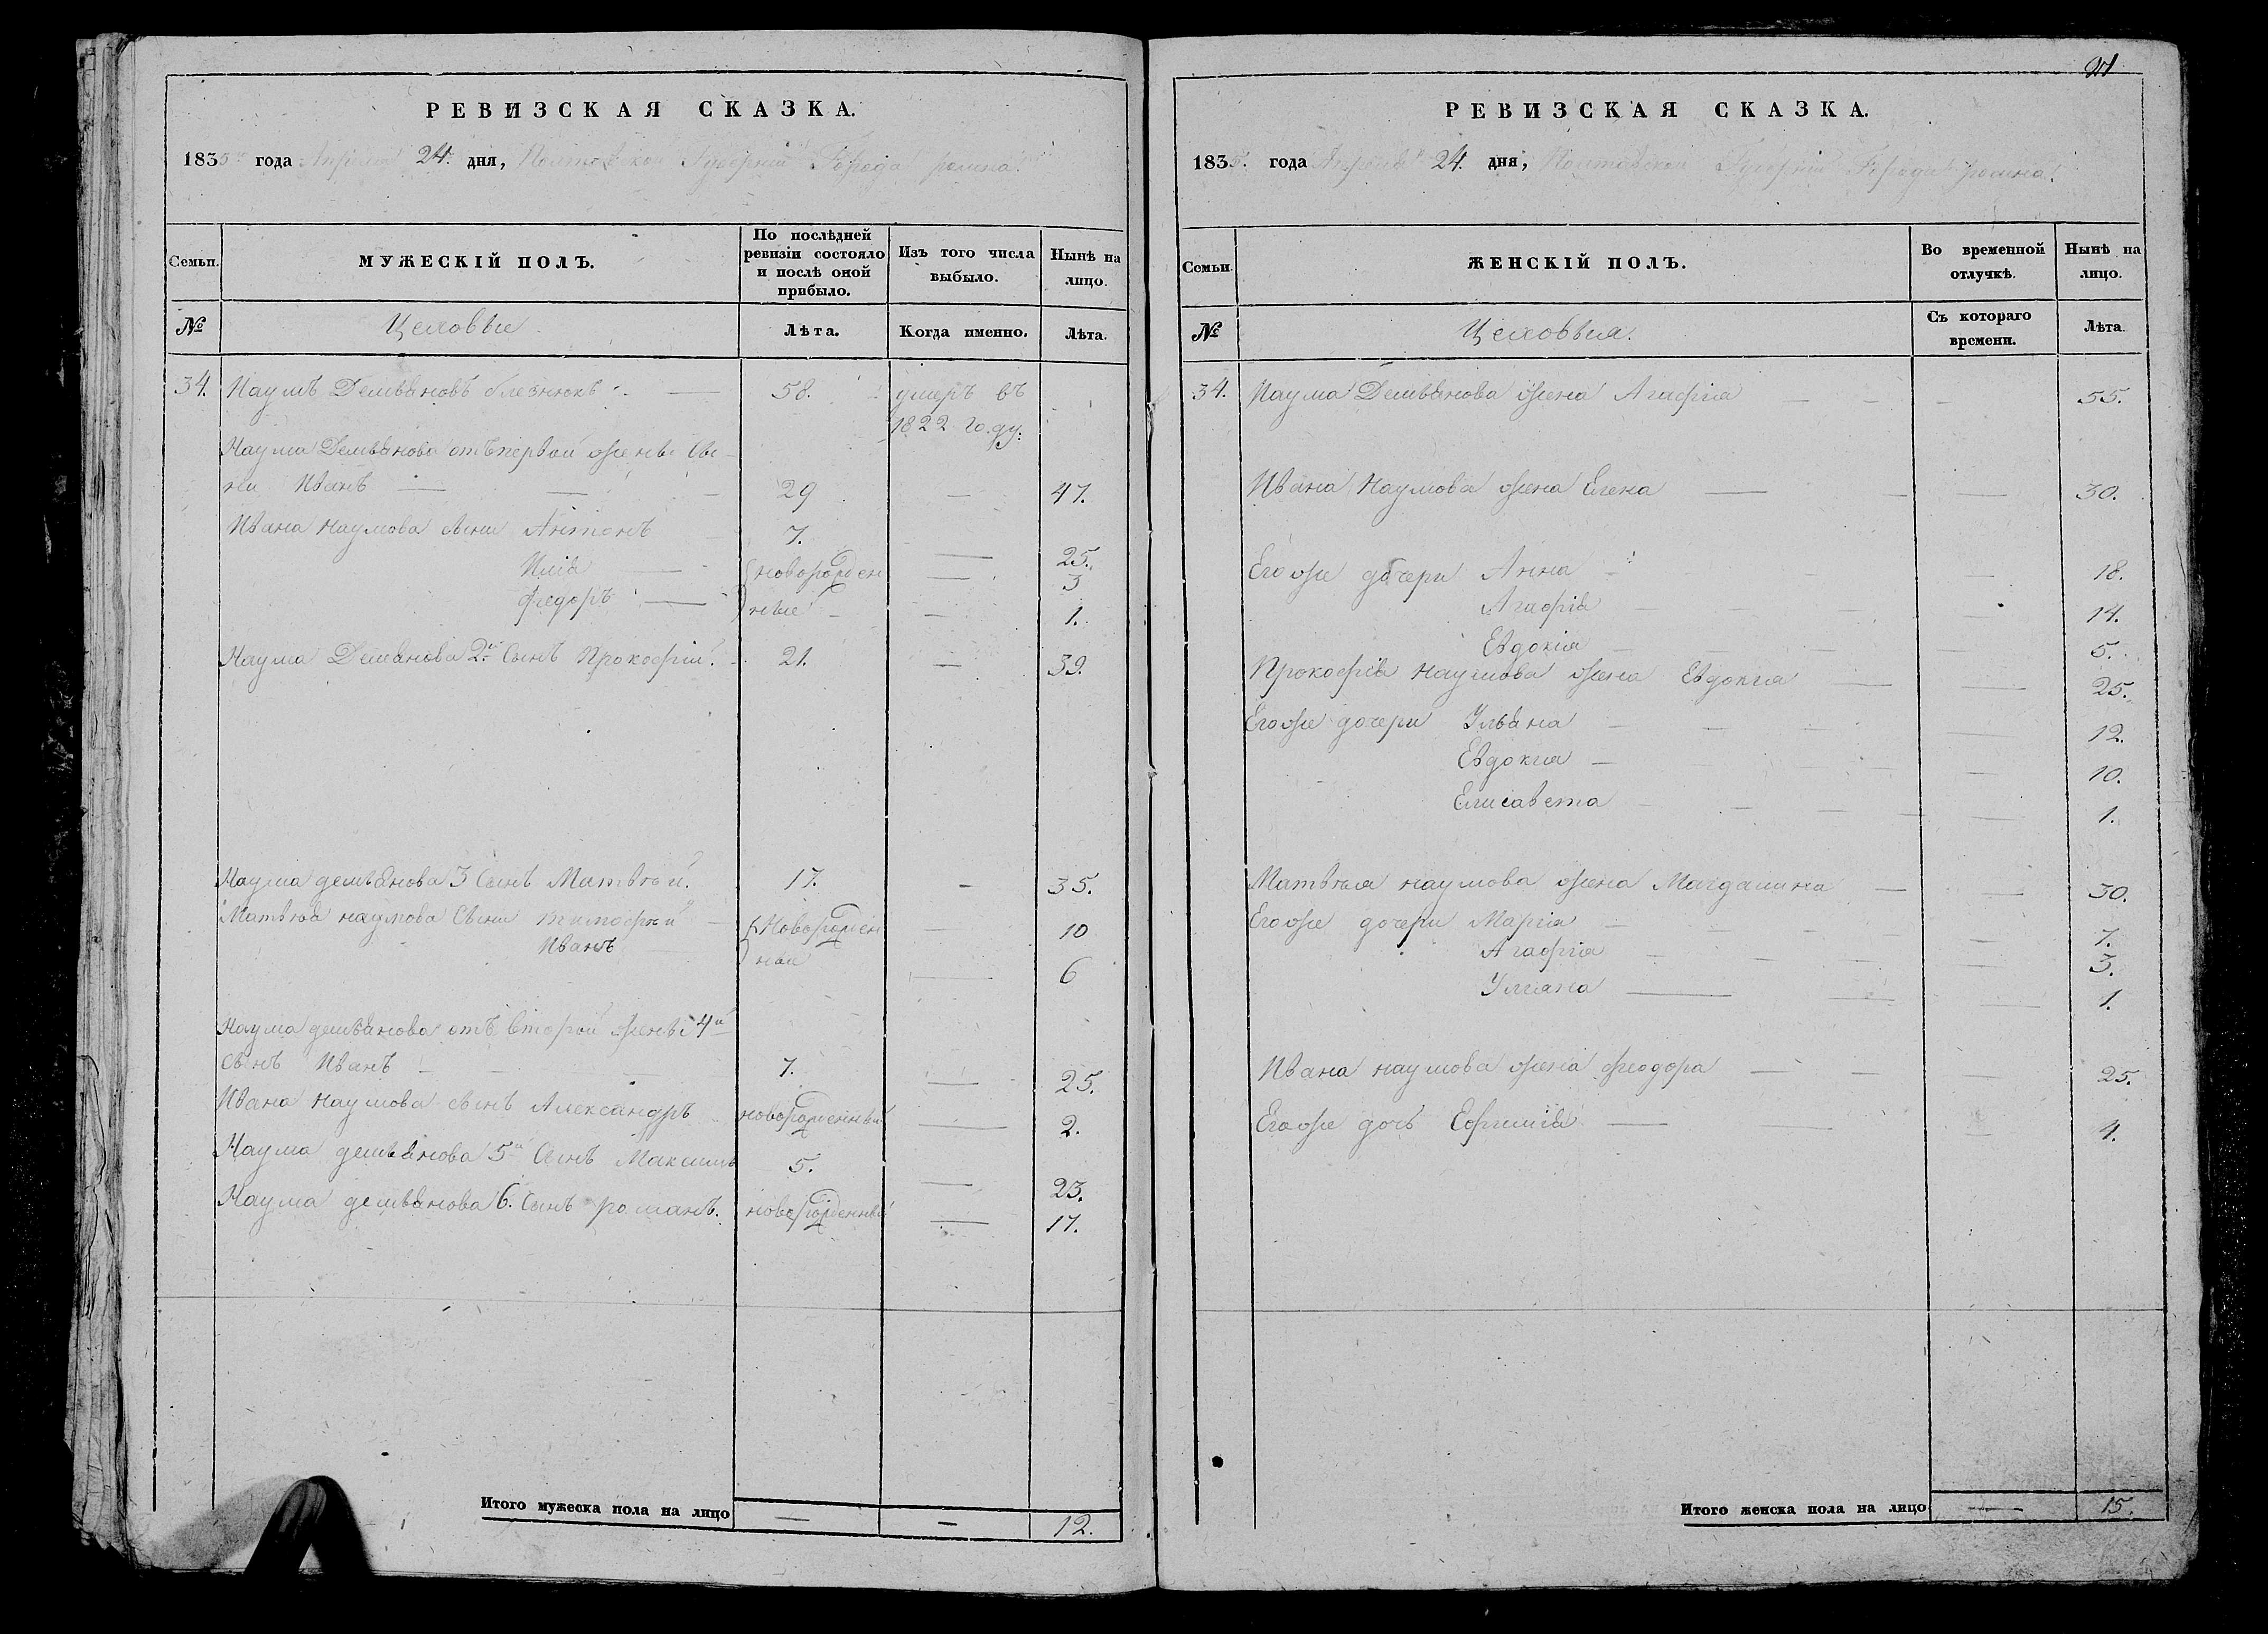 РЕВИЗСКАЯ СКАЗКА.
1835 года Апреля 24. дня, Полтавской Губернии Города ромна.
Семьи.
МУЖЕСКІЙ ПОЛЪ.
По послѣдней
ревизіи состояло
и послѣ оной
прибыло.
Изъ того числа
выбыло.
Нынѣ на
лицо.
№
Цеховые
Лѣта.
Когда именно.
Лѣта.
34. Наумъ Демьяновъ 58. умеръ въ
1822 году.
Наума Демьянова отъ первой жены Сы-
ни Иванъ — 29 — 47.
Ивана наумова сыни Антонъ 7. — 25.
Илія — новорожден — 3
федоръ — ные — 1.
Наума Демянова 2й Сынъ Прокофій. 21. — 39.
Наума демьянова 3 Сынъ Матвѣй. 17. — 35.
Матвѣя наумова Сыни тимофѣй — Новорожден — 10
Иванъ ные — 6
Наума демьянова отъ второй жены 4й
сынъ Иванъ — 7. — 25.
Ивана наумова сынъ Александръ новорожденный — 2.
Наума демьянова 5й Сынъ Максимъ 5. — 23.
Наума демьянова 6. Сынъ романъ. новорожденный — 17.
Итого мужеска пола на лицо — — 12.
21
РЕВИЗСКАЯ СКАЗКА.
1835. года Апреля 24. дня, Полтавской Губерніи Города ромна.
Семьи.
ЖЕНСКІЙ ПОЛЪ.
Во временной
отлучкѣ.
Нынѣ на
лицо.
№
Цеховыя.
Съ котораго
времени.
Лѣта.
34. Наума Демьянова жена Агафія — 55.
Ивана Наумова жена Елена — 30.
Его же дочери Анна — 18.
Агафія — 14.
Евдокія — 5.
Прокофія наумова жена Евдокія — 25.
Его же дочери Ульяна — 12.
Евдокия — 10.
Елисавета — 1.
Матвѣя наумова жена Магдалина — 30.
Его же дочери Марія — 7.
Агафія — 3.
Улияна — 1.
Ивана наумова жена феодора — 25.
Его же дочь Ефимія — 4.
Итого женска пола на лицо — 15.